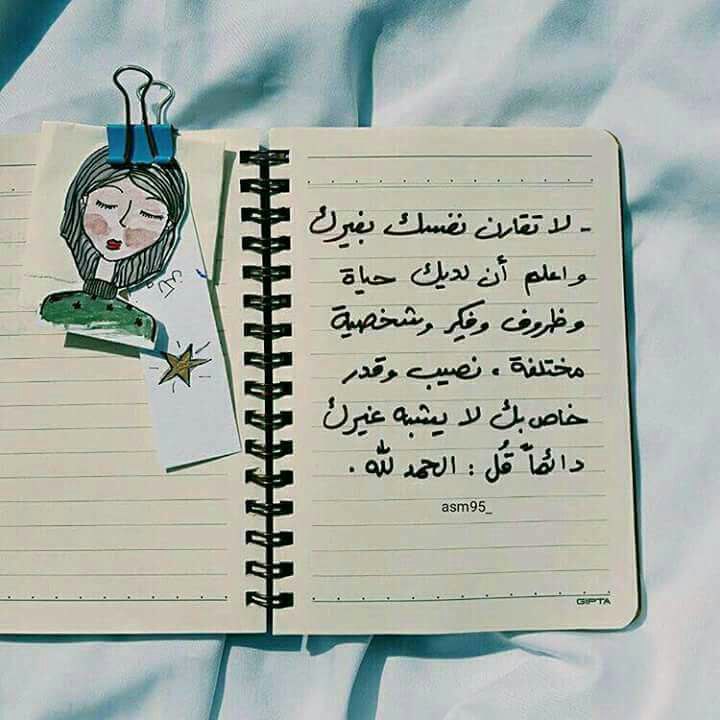 - لا تقارن نفسك بغيرك
واعلم أن لديك حياة
وظروف وفكر وشخصية
مختلفة ، نصيب وقدر
خاص بك لا يشبه غيرك
دائماً قُل : الحمد لله .
asm95_
GIPTA